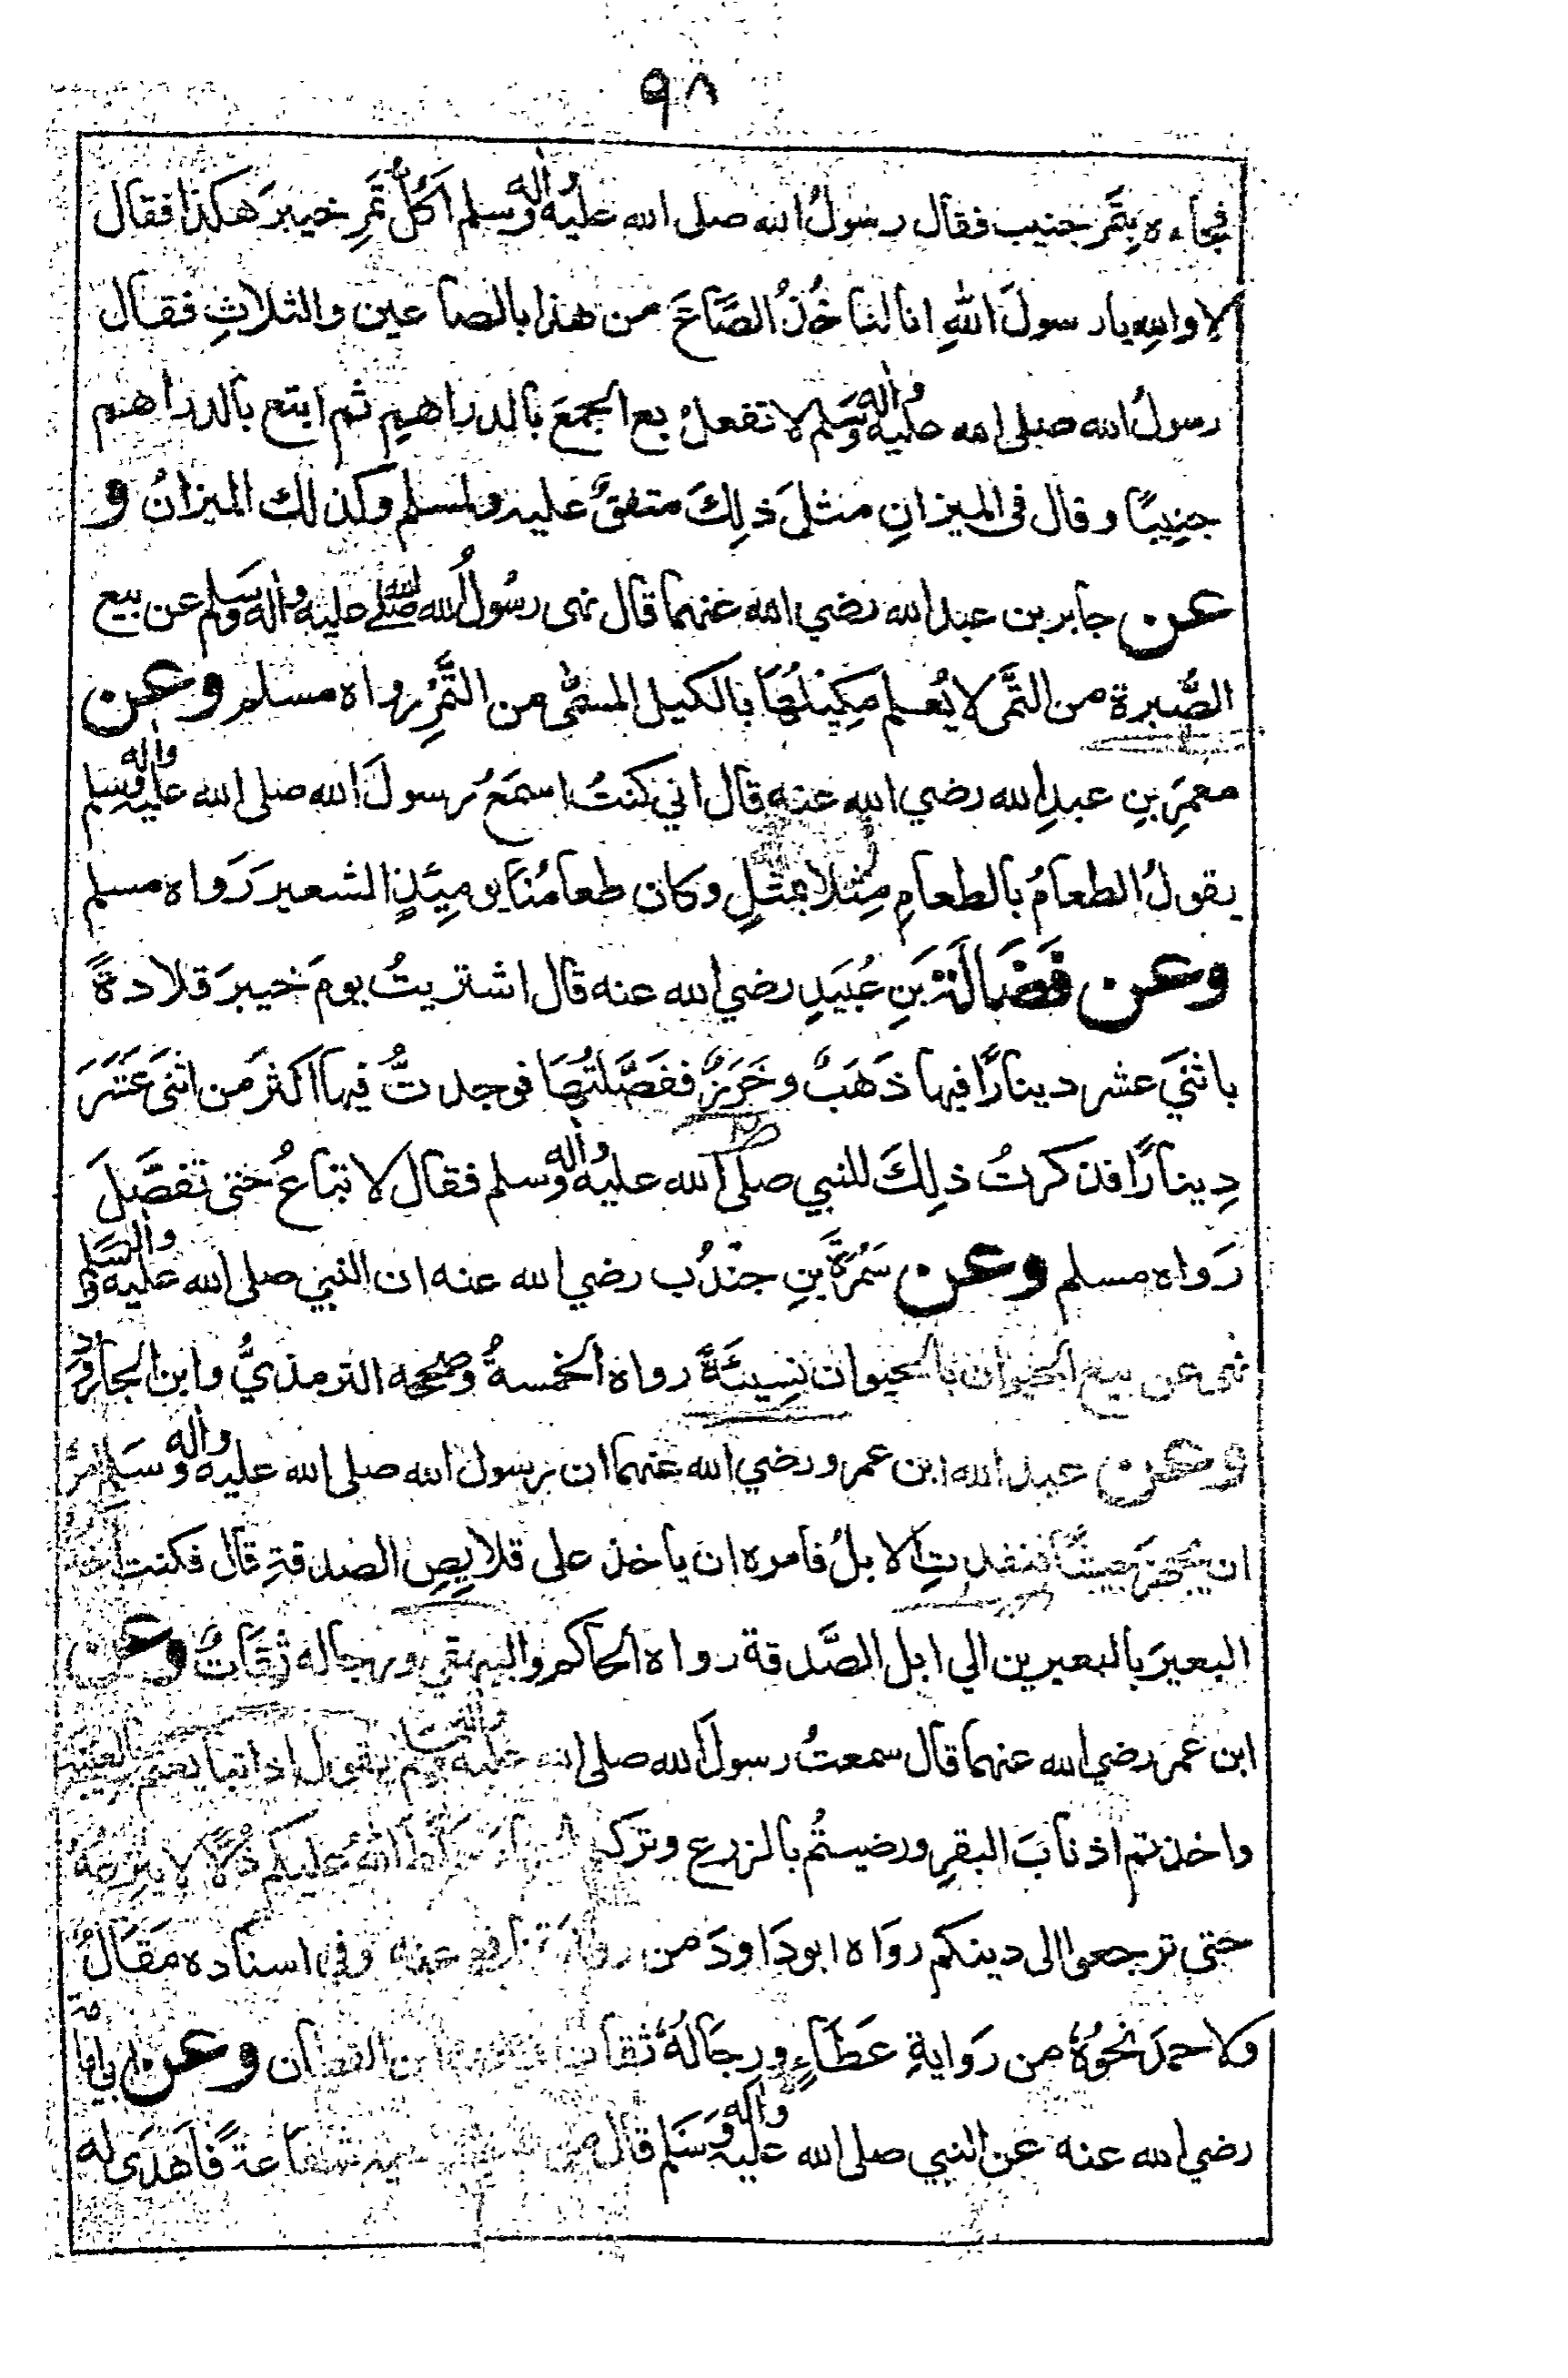 ٩٨
فجاءه بِتَمَرٍ جنيب فقال رسولُ الله صلى الله عليه واٰله وسلم اَكُلُّ تَمَرِ خيبرَ هكذا فقال
لا والله يا رسولَ اللهِ انا لنا خُذُ الصَّاعَ من هذا بالصاعين والثلاثِ فقال
رسولُ الله صلى الله عليه واٰله وسَلم لا تفعلْ بع الجمعَ بالدراهيمِ ثم ابتع بالدراهيم
جنِيبًا وقال فى الميزانِ مثلَ ذلِكَ متفقٌ عليه ولمسلم وكذلك الميزانُ و
عن جابر بن عبد الله رضي الله عنهما قال نهى رسُولُ الله صلى الله عليه واٰله وسَلم عن بيع
الصُّبرة من التَّمر لا يُعلم مَكِيْلُهَا بالكيل المسمّٰى من التَّمْرِ رواه مسلم وعن
معمَرِ بنِ عبدِ الله رضي الله عنه قال اني كنتُ اسمَعُ رسولَ الله صلى الله عليه واٰله وسلم
يقولُ الطعامُ بالطعامِ مِثلا بمثلٍ وكان طعامُنَا يوميِّذٍ الشعيرَ رَواه مسلم
وعن فَضَالَةَ بَنِ عُبَيَدٍ رضي الله عنه قال اشتريتُ يومَ خيبرَ قلادةً
باثنَي عشر دينارًا فيها ذَهَبٌ وخَرَزٌ ففَصَّلتُهَا فوجدتُّ فيها اكثرَ من اثنَي عَشَرَ
دِينارًا فذكرتُ ذلِكَ للنبي صلى الله عليه واٰله وسلم فقال لا تباعُ حتى تفصَّلَ
رَواه مسلم وعن سَمُرَةَ بنِ جنْدُبٍ رضي الله عنه ان النبي صلى الله عليه واٰله وسَلم
نهى عن بيع الحيوان بالحيوان نسِيئَةً رواه الخمسةُ وصححه الترمذيُّ وابن الجارود
وعن عبد الله ابن عمرو رضي الله عنهما ان رسول الله صلى الله عليه واٰله وسَلم امرَهُ
ان يُجهّزَ جيشًا فنفدتِ الابلُ فامره ان ياخذ على قلايِصِ الصدقةِ قال فكنت اخذ
البعيرَ بالبعيرين الي ابل الصَّدقة رواه الحاكم والبيهقي ورجاله ثقاتٌ وعن
ابن عمر رضي الله عنهما قال سمعتُ رسولَ الله صلى الله عليه واٰله وسلم يقول اذا تبايعتم بالعينة
واخذتم اذنابَ البقرِ ورضيتُم بالزرع وتركتم الجهاد سَلَّطَ اللهُ عليكم ذُلًّا لا ينزِعُهُ
حتى ترجعوا الى دينكم روَاه ابودَاودَ من رواية نافع عنه وفي اسناده مَقَالٌ
ولاحمدَ نحوُهُ من رَوايةِ عَطَاءٍ ورِجَالُهُ ثقات وصححه ابن القطان وعن ابي امامة
رضي الله عنه عن النبي صلى الله عليه واٰله وسَلم قال من شفاعةً فاَهدَى له